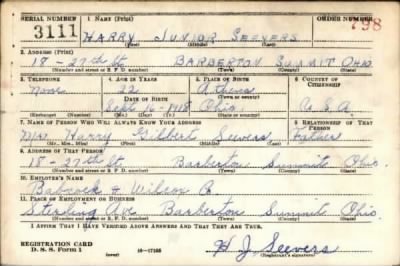 SERIAL NUMBER 1. NAME (Print) ORDER NUMBER
3111 HARRY JUNIOR SEEVERS 798
(First) (Middle) (Last)
2. ADDRESS (Print)
18-27th St. BARBERTON SUMMIT OHIO
(Number and street or R. F. D. number) (Town) (County) (State)
3. TELEPHONE 4. AGE IN YEARS 5. PLACE OF BIRTH 6. COUNTRY OF CITIZENSHIP
None 22 Athens
DATE OF BIRTH
Sept 16-1918 Ohio U.S.A
(Exchange) (Number) (Mo.) (Day) (Yr.) (State or country)
7. NAME OF PERSON WHO WILL ALWAYS KNOW YOUR ADDRESS 8. RELATIONSHIP OF THAT PERSON
Mr Harry Gilbert Seevers Father
(Mr., Mrs., Miss) (First) (Middle) (Last)
9. ADDRESS OF THAT PERSON
18-27th St. Barberton Summit Ohio.
(Number and street or R. F. D. number) (Town) (County) (State)
10. EMPLOYER'S NAME
Babcock & Wilcox Co
11. PLACE OF EMPLOYMENT OR BUSINESS
Sterling Ave Barberton Summit Ohio.
(Number and street or R. F. D. number) (Town) (County) (State)
I AFFIRM THAT I HAVE VERIFIED ABOVE ANSWERS AND THAT THEY ARE TRUE.
REGISTRATION CARD
D. S. S. Form 1 16-17105 H J Seevers
(Registrant's signature)